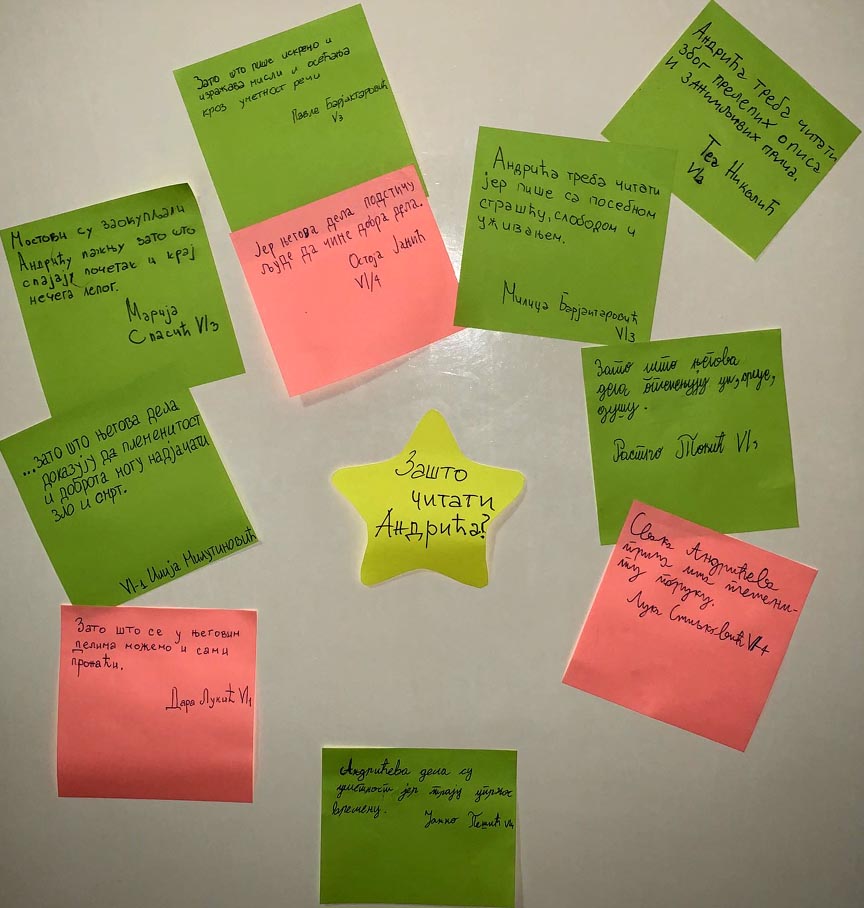 Зато што пише искрено и
изражава мисли и осећања
кроз уметност речи
Павле Барјактаровић
VI3
Андрића треба читати
због прелепих описа
и занимљивих прича.
Теа Николић
VI2
Андрића треба читати
јер пише са посебном
страшћу, слободом и
уживањем.
Милица Барјактаровић
VI3
Јер његова дела подстичу
људе да чине добра дела.
Остоја Јанић
VI/4
Мостови су заокупљали
Андрићу пажњу зато што
спајају почетак и крај
нечега лепог.
Марија
Спасић VI/3
Зато што његова
дела оплемењују ум, срце,
душу.
Растко Тонић VI3
...зато што његова дела
доказују да племенитост
и доброта могу надјачати
зло и смрт.
VI-1 Илија Милутиновић
Зашто
читати
Андрића?
Свака Андрићева
прича има племени-
ту поруку.
Лука VI-4
Зато што се у његовим
делима можемо и сами
пронаћи.
Дара Лукић VI1
Андрићева дела су
уметност јер трају упркос
времену.
Јанко Пешић VI4